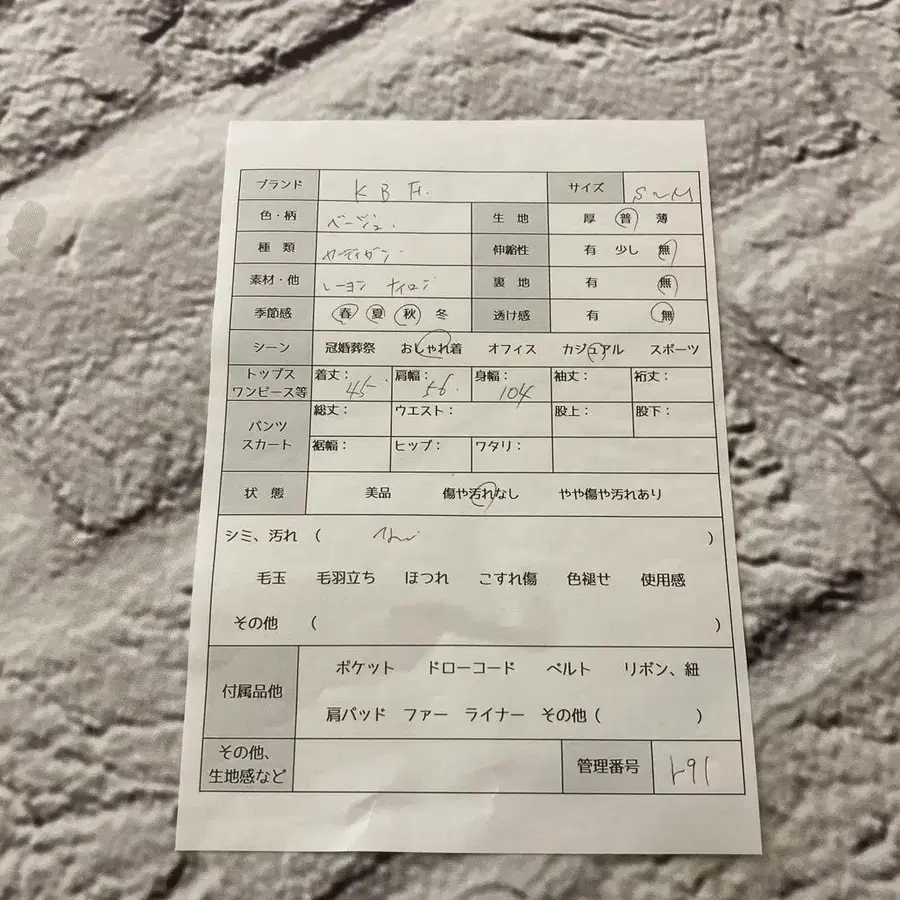 ブランド K B F. サイズ S〜M
色・柄 ベージュ. 生地 厚 普 薄
種類 カーディガン. 伸縮性 有 少し 無
素材・他 レーヨン ナイロン 裏地 有 無
季節感 春 夏 秋 冬 透け感 有 無
シーン 冠婚葬祭 おしゃれ着 オフィス カジュアル スポーツ
トップス ワンピース等 着丈: 45. 肩幅: 56. 身幅: 104 袖丈: 裄丈:
パンツ スカート 総丈: ウエスト: 股上: 股下:
裾幅: ヒップ: ワタリ:
状態 美品 傷や汚れなし やや傷や汚れあり
シミ、汚れ ( )
毛玉 毛羽立ち ほつれ こすれ傷 色褪せ 使用感
その他 ( )
付属品他 ポケット ドローコード ベルト リボン、紐
肩パッド ファー ライナー その他 ( )
その他、
生地感など 管理番号